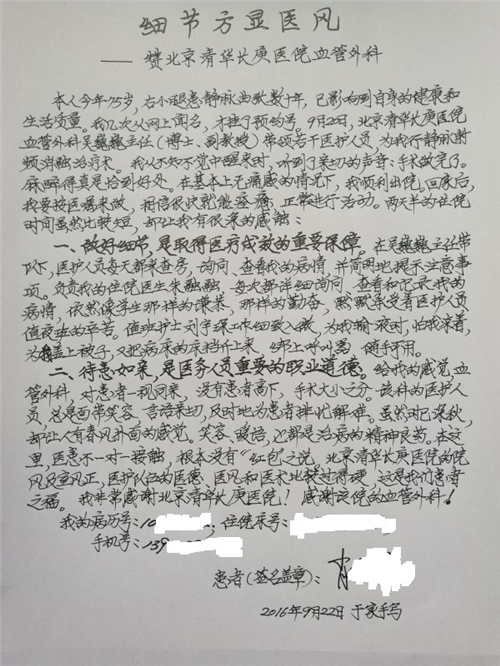 细节方显医风
——赞北京清华长庚医院血管外科
本人今年75岁,右小腿患静脉曲张数十年,已影响到自身的健康和
生活质量。我几次从网上闻名,才挂了预约号。9月20日,北京清华长庚医院
血管外科吴巍巍主任(博士、副教授)带领若干医护人员,为我行静脉射
频消融治疗术。我从不知不觉中醒来时,听到了亲切的声音:手术做完了。
麻醉得真是恰到好处。在基本上无痛感的情况下,我顺利出院。回家后,
我要按医嘱来做,相信很快就能痊愈,正常进行活动。两天半的住院
时间虽然比较短,却让我有很深的感触:
一、做好细节,是取得医疗成效的重要保障。在吴巍巍主任带
队下,医护人员每天都来查房,询问、查看我的病情,并简明地提示注意事
项。负责我的住院医生朱融融,每次都详细询问、查看和记录我的
病情,依然像学生那样的谦恭,那样的勤奋,默默承受着医护人员
值夜班的辛苦。值班护士刘宇琛工作细致入微,为我输液时,怕我冻着,
为我盖上被子,又把病床的床档升上来,绑上呼叫器,随手可用。
二、待患如亲,是医务人员重要的职业道德。给我的感觉,血
管外科,对患者一视同来,没有患者高下,手术大小之分。该科的医护人
员,总是面带笑容,言语亲切,及时地为患者排忧解难。虽然时已深秋,
却让人有春风扑面的感觉。笑容、暖语,也都是治病的精神良药。在这
里,医患不一对一接触,根本没有“红包”之说。北京清华长庚医院的院
风及室风正,医护队伍的医德、医风和医术也较过得硬,这是我们患者
之福。我非常感谢北京清华长庚医院!感谢该院的血管外科!
我的病历号:10 ;住院床号:
手机号:139
患者(签名盖章):肖
2016年9月22日 于家手写